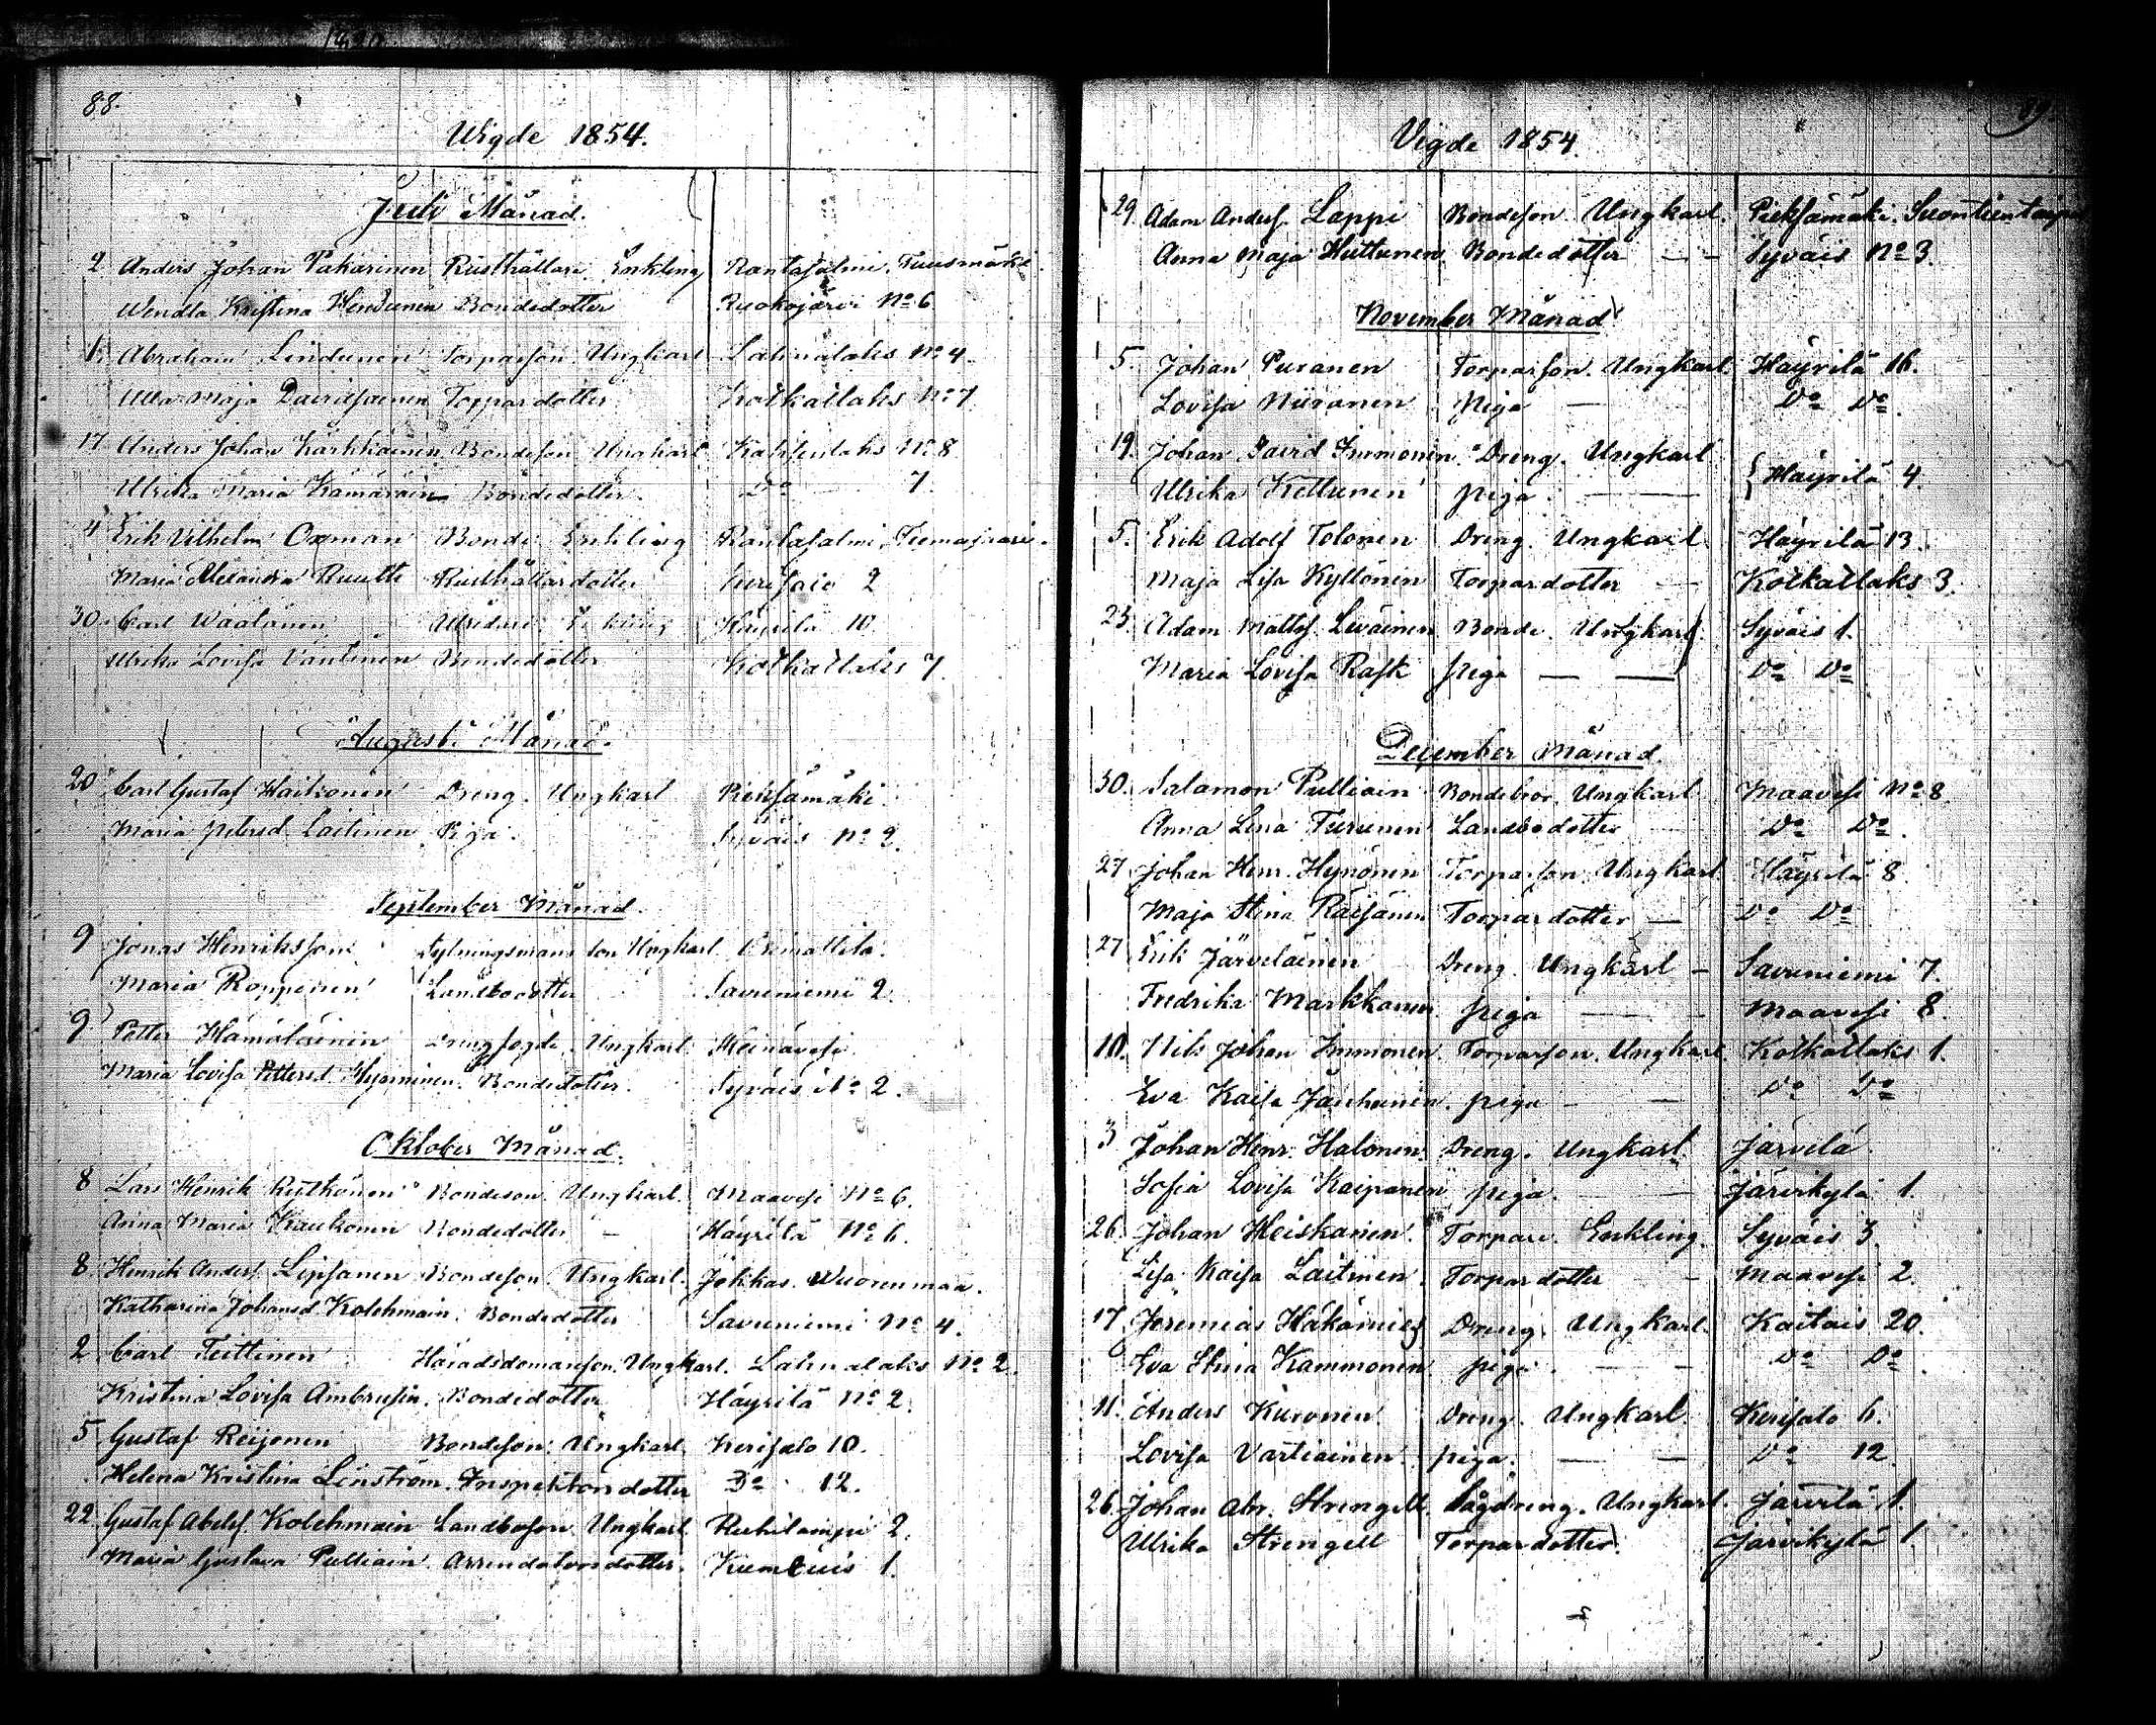 88.
Wigde 1854.
Juli Månad.
2 Anders Johan Pakarinen Rusthållare Enkling Rantasalmi, Tuusmäki
Wendla Kristina Bondedotter Ruokojärvi No 6
Abraham Lindunen Torpareson Ungkarl Lahnalaks No 4
Ulla Maja Torpardotter Kolkatlaks No 7
17 Anders Johan Karhkainen Bondeson Ungkarl No 8
Ulrika Maria Kämäräin Bondedotter Do 7
4 Erik Vilhelm Oxman Bonde Enkling Rantasalmi,
Maria Alexandra Ruuth Rusthållardotter 2
30 Carl Wäätänen Häyrilä 10
Ulrika Lovisa Väntinen Bondedotter Kolkatlaks 7.
Augusti Månad.
20 Carl Gustaf Dreng. Ungkarl Pieksämäki
Maria Petersd. Laitinen Piga. Syväis No 2.
September Månad.
9 Jonas Henriksson Ungkarl Orimattila.
Maria Ropponen Landbodotter Savuniemi 2
9 Petter Hämäläinen Drengfogde. Ungkarl. Heinävesi.
Maria Lovisa Pettersd. Bondedotter. Syväis No 2.
Oktober Månad.
8 Lars Henrik Rytkönen Bondeson. Ungkarl. Maavesi No 6.
Anna Maria Kaukonen Bondedotter – Häyrilä No 6.
8 Henrik Anders. Lipsanen Bondeson Ungkarl. Jokkas. Wuorenmaa.
Katharina Johansd. Kolehmain. Bondedotter Savuniemi No 4.
2 Carl Teittinen Häradsdomareson. Ungkarl. Lahnalaks No 2.
Kristina Lovisa Ambrusin. Bondedotter Häyrilä No 2.
5 Gustaf Reijonen Bondeson Ungkarl Kerisalo 10.
Helena Kristina Linström. Inspektorsdotter Do 12.
22 Gustaf Abelsf. Kolehmain Landboson Ungkarl Ruhilampi 2.
Maria Gustava Pulliain Arrendatorsdotter. 1.
Vigde 1854.
29. Adam Andersf. Lappi Bondeson Ungkarl. Pieksämäki,
Anna Maja Huttunen Bondedotter — – Syväis No 3.
November Månad
5. Johan Puranen Torparson. Ungkarl. Häyrilä 16.
Lovisa Niiranen Piga — Do Do.
19. Johan David Immonen Dreng. Ungkarl
Ulrika Kettunen piga. — — Häyrilä 4.
5. Erik Adolf Tolonen Dreng. Ungkarl. Häyrilä 13.
Maja Lisa Kyllönen Torpardotter — Kolkatlaks 3.
23. Adam Mattsf. Leväinen Bonde. Ungkarl. Syväis 1.
Maria Lovisa Rask piga — — Do Do
December Månad.
30. Salamon Pulliain Bondebror. Ungkarl. Maavesi No 8.
Anna Lena Turunen Landbodotter Do Do.
27 Johan Henr. Hynönen Torparson Ungkarl Häyrilä 8.
Maja Stina Räisänen Torpardotter — Do Do
27 Erik Järveläinen Dreng. Ungkarl – Savuniemi 7.
Fredrika Markkanen piga — – Maavesi 8.
10. Nils Johan Immonen. Torparson. Ungkarl. Kolkatlaks 1.
Eva Kaisa Jauhunen. piga – — Do Do
3 Johan Henr. Halonen. Dreng. Ungkarl. Järvelä.
Sofia Lovisa Kaipanen piga. — Järvikylä 1.
26. Johan Heiskanen. Torpare. Enkling. Syväis 3.
Lisa Kaisa Laitinen. Torpardotter – Maavesi 2.
17. Jeremias Häkämies Dreng. Ungkarl. Kaitais 20.
Eva Stina Kammonen piga. — — Do Do.
11. Anders Kuronen. Dreng. Ungkarl. Kerisalo 6.
Lovisa Vartiainen. piga. — — Do 12.
26. Johan Abr. Strengell. Ungkarl. Järvelä 1.
Ulrika Strengell Torpardotter. Järvikylä 1